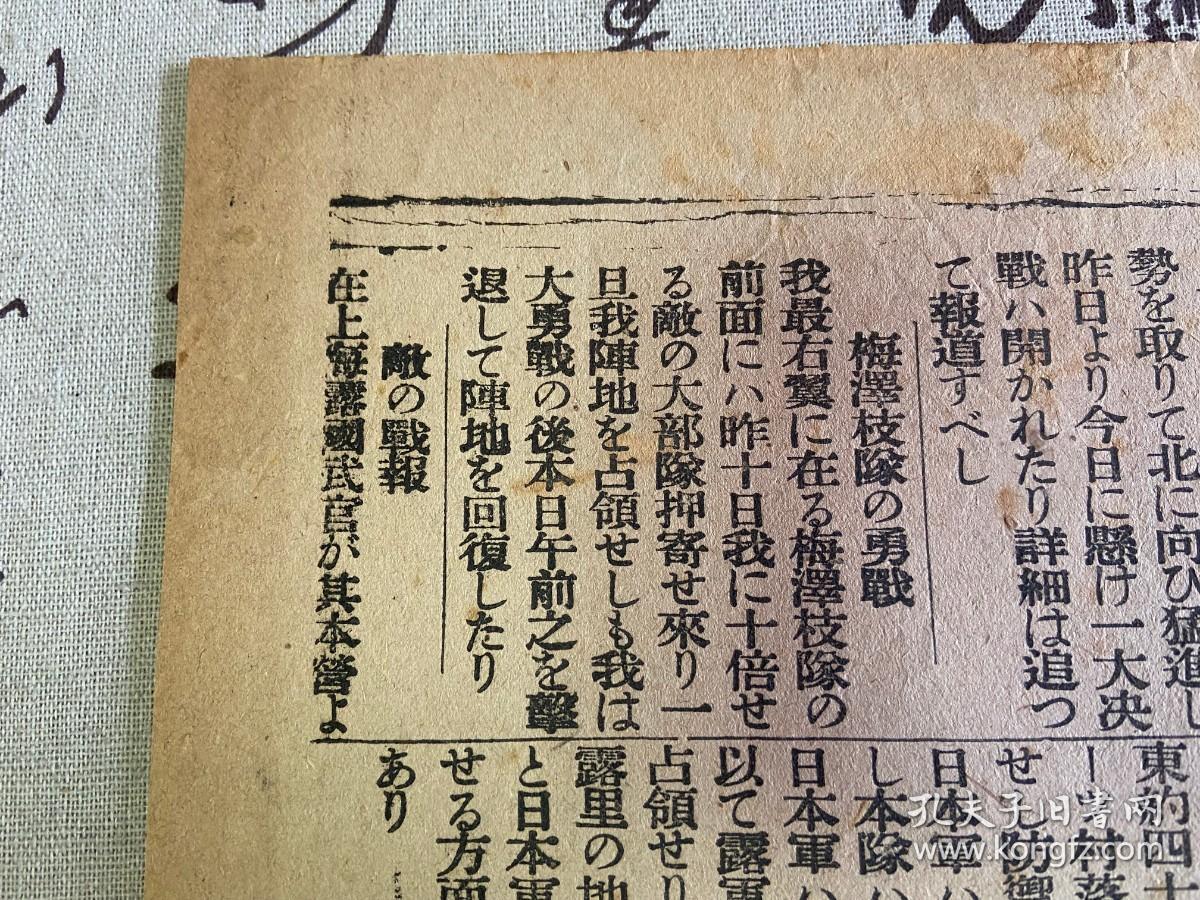 勢を取りて北に向ひ猛進し
昨日より今日に懸け一大决
戰ハ開かれたり詳細は追つ
て報道すべし
梅澤枝隊の勇戰
我最右翼に在る梅澤枝隊の
前面にハ昨十日我に十倍せ
る敵の大部隊押寄せ來り一
旦我陣地を占領せしも我は
大勇戰の後本日午前之を擊
退して陣地を回復したり
敵の戰報
在上海露國武官が其本營よ
東約四十
村落
せ防禦
日本軍ハ
し本隊ハ
日本軍ハ
以て露軍
占領せり
露里の地
と日本軍
せる方面
あり
孔夫子旧书网
www.kongfz.com